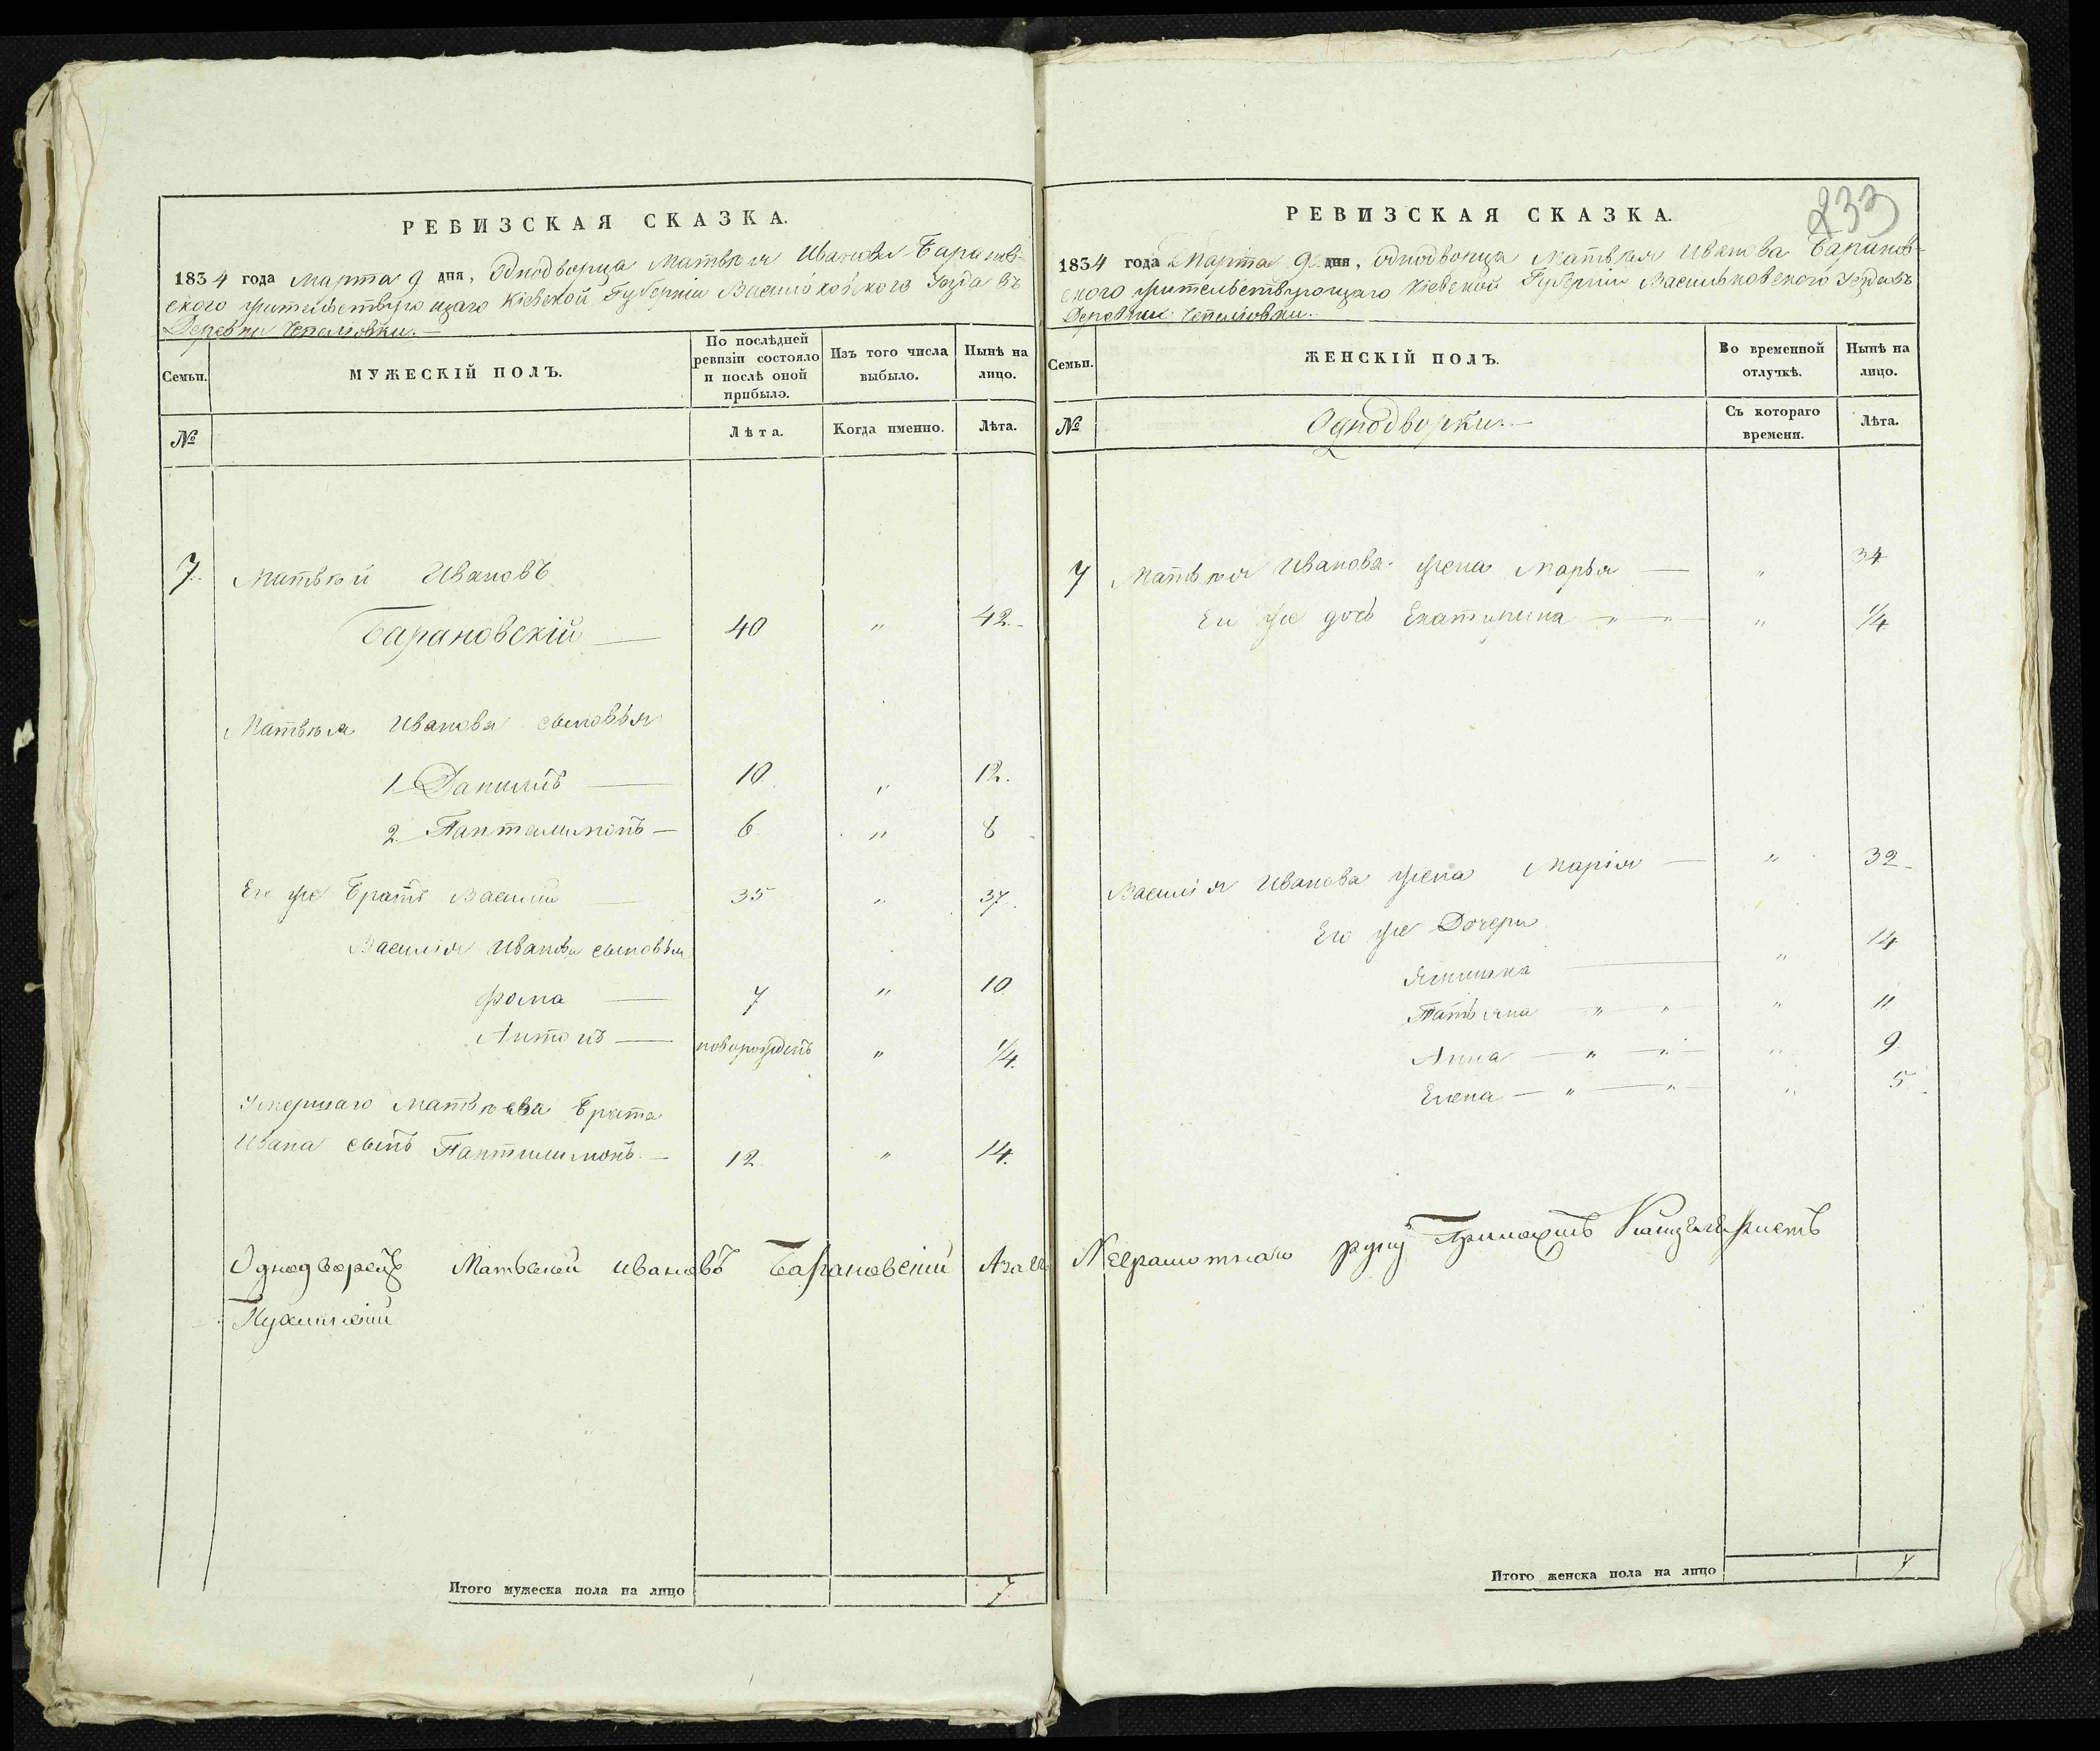 РЕВИЗСКАЯ СКАЗКА.
1834 года Марта 9 дня, Однодворца Матвѣя Иванова Баранов-
ского жительствующаго Кіевской Губерніи Васильковского Уѣзда въ
Деревни
Семьи.
МУЖЕСКІЙ ПОЛЪ.
По послѣдней ревизіи состояло и послѣ оной прибыло.
Изъ того числа выбыло.
Нынѣ на лицо.
№
Лѣта.
Когда именно.
Лѣта.
7 Матвѣй Ивановъ
Барановскій — 40 " 42.
Матвѣя Иванова сыновья
1 Данилъ — 10 " 12.
2 Пантелимонъ — 6 " 8
Его же Братъ Василій — 35 " 37.
Василія Иванова сыновья
Фома — 7 " 10
Антонъ — новорожденъ " 1/4.
Умершаго Матвѣева Брата
Ивана сынъ Пантилимонъ — 12 " 14.
Однодворецъ Матвѣей Ивановъ Барановскій
Итого мужеска пола на лицо 7
РЕВИЗСКАЯ СКАЗКА.
233
1834 года Марта 9 дня, Однодворца Матвѣя Иванова Баранов-
ского жительствующаго Кіевской Губерніи Васильковского Уѣзда въ
Деревни
Семьи.
ЖЕНСКІЙ ПОЛЪ.
Во временной отлучкѣ.
Нынѣ на лицо.
№
Однодворки.
Съ котораго времени.
Лѣта.
7 Матвѣя Иванова жена Марья — " 34
Ей же дочь Екатирина — " — " — " 1/4
Василія Иванова жена Марія — " 32
Его же Дочери
— " 14
Татьяна — " " — " 11
Анна — " — " — " 9
Елена — " — " — " 5
Неграмотнаго руку Канцеляристъ
Итого женска пола на лицо 7